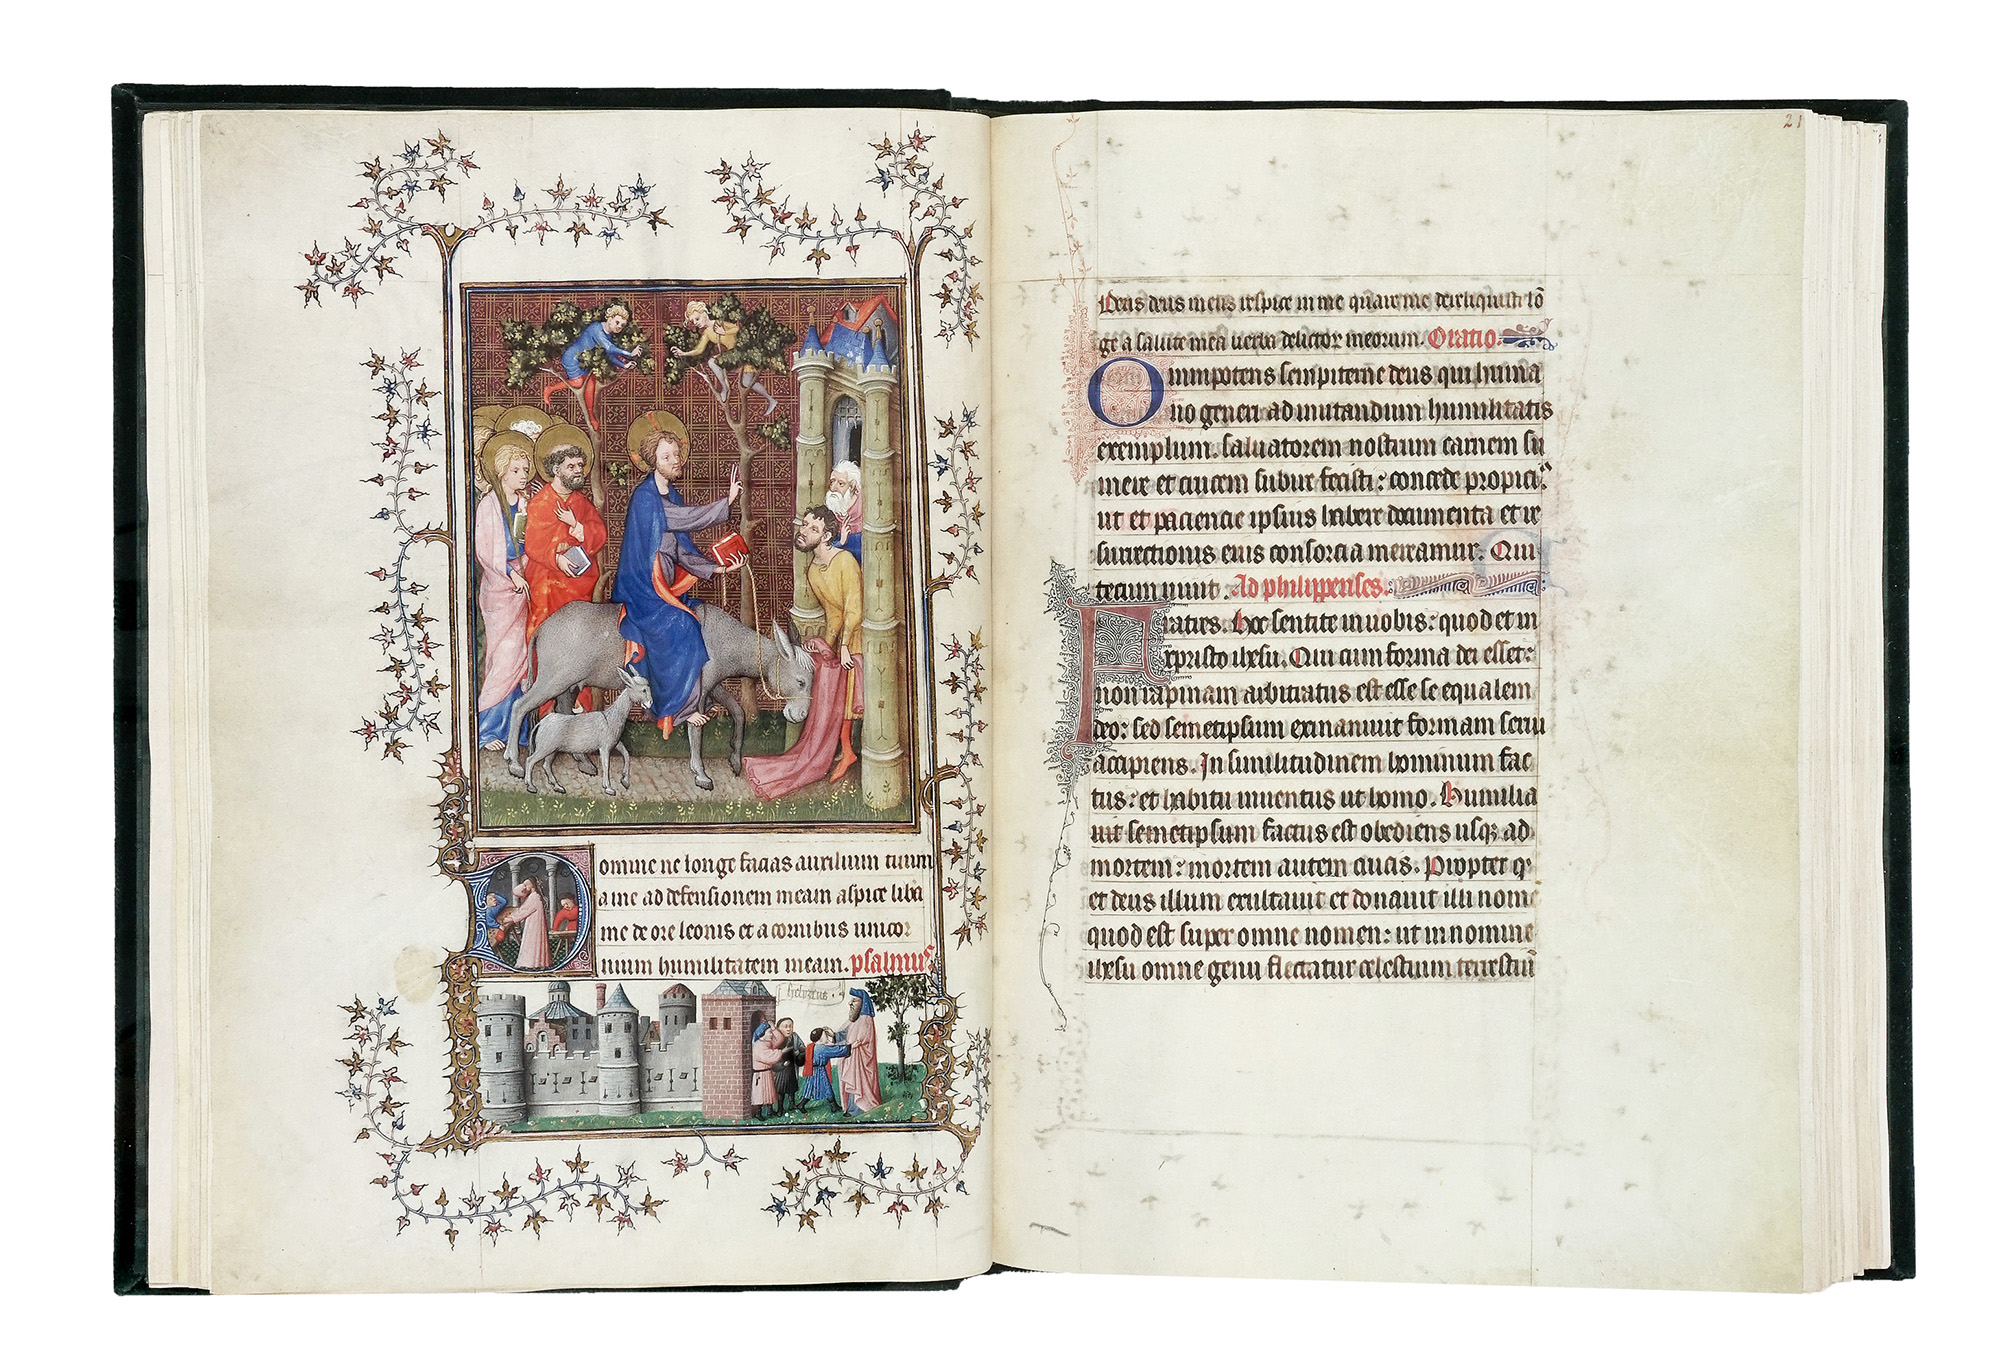 omine ne longe facias auxilium tuum
a me ad defensionem meam aspice libera
me de ore leonis et a cornibus unicor
nium humilitatem meam. psalmus.
21
Deus deus meus respice in me quare me dereliquisti lō
ge a salute meā verba delictor meorum. Oratio.
Omnipotens sempiterne deus qui humā
no generi ad imitandum humilitatis
exemplum. saluatorem nostrum carnem su
mere et crucem subire fecisti: concede propici9
ut et paciencie ipsius habere documenta et re
surrectionis eius consorcia mereamur. Qui
tecum uiuit. Ad philippenses.
Fratres. Hoc sentite in uobis: quod et in
xpristo ihesu. Qui cum forma dei esset:
non rapinam arbitratus est esse se equalem
deo: sed semetipsum exinaniuit formam serui
accipiens. In similitudinem hominum fac
tus: et habitu inuentus ut homo. Humilia
uit semetipsum factus est obediens usq; ad
mortem: mortem autem crucis. Propter q
et deus illum exultauit et donauit illi nome
quod est super omne nomen: ut in nomine
ihesu omne genu flectatur celestium terrestiū